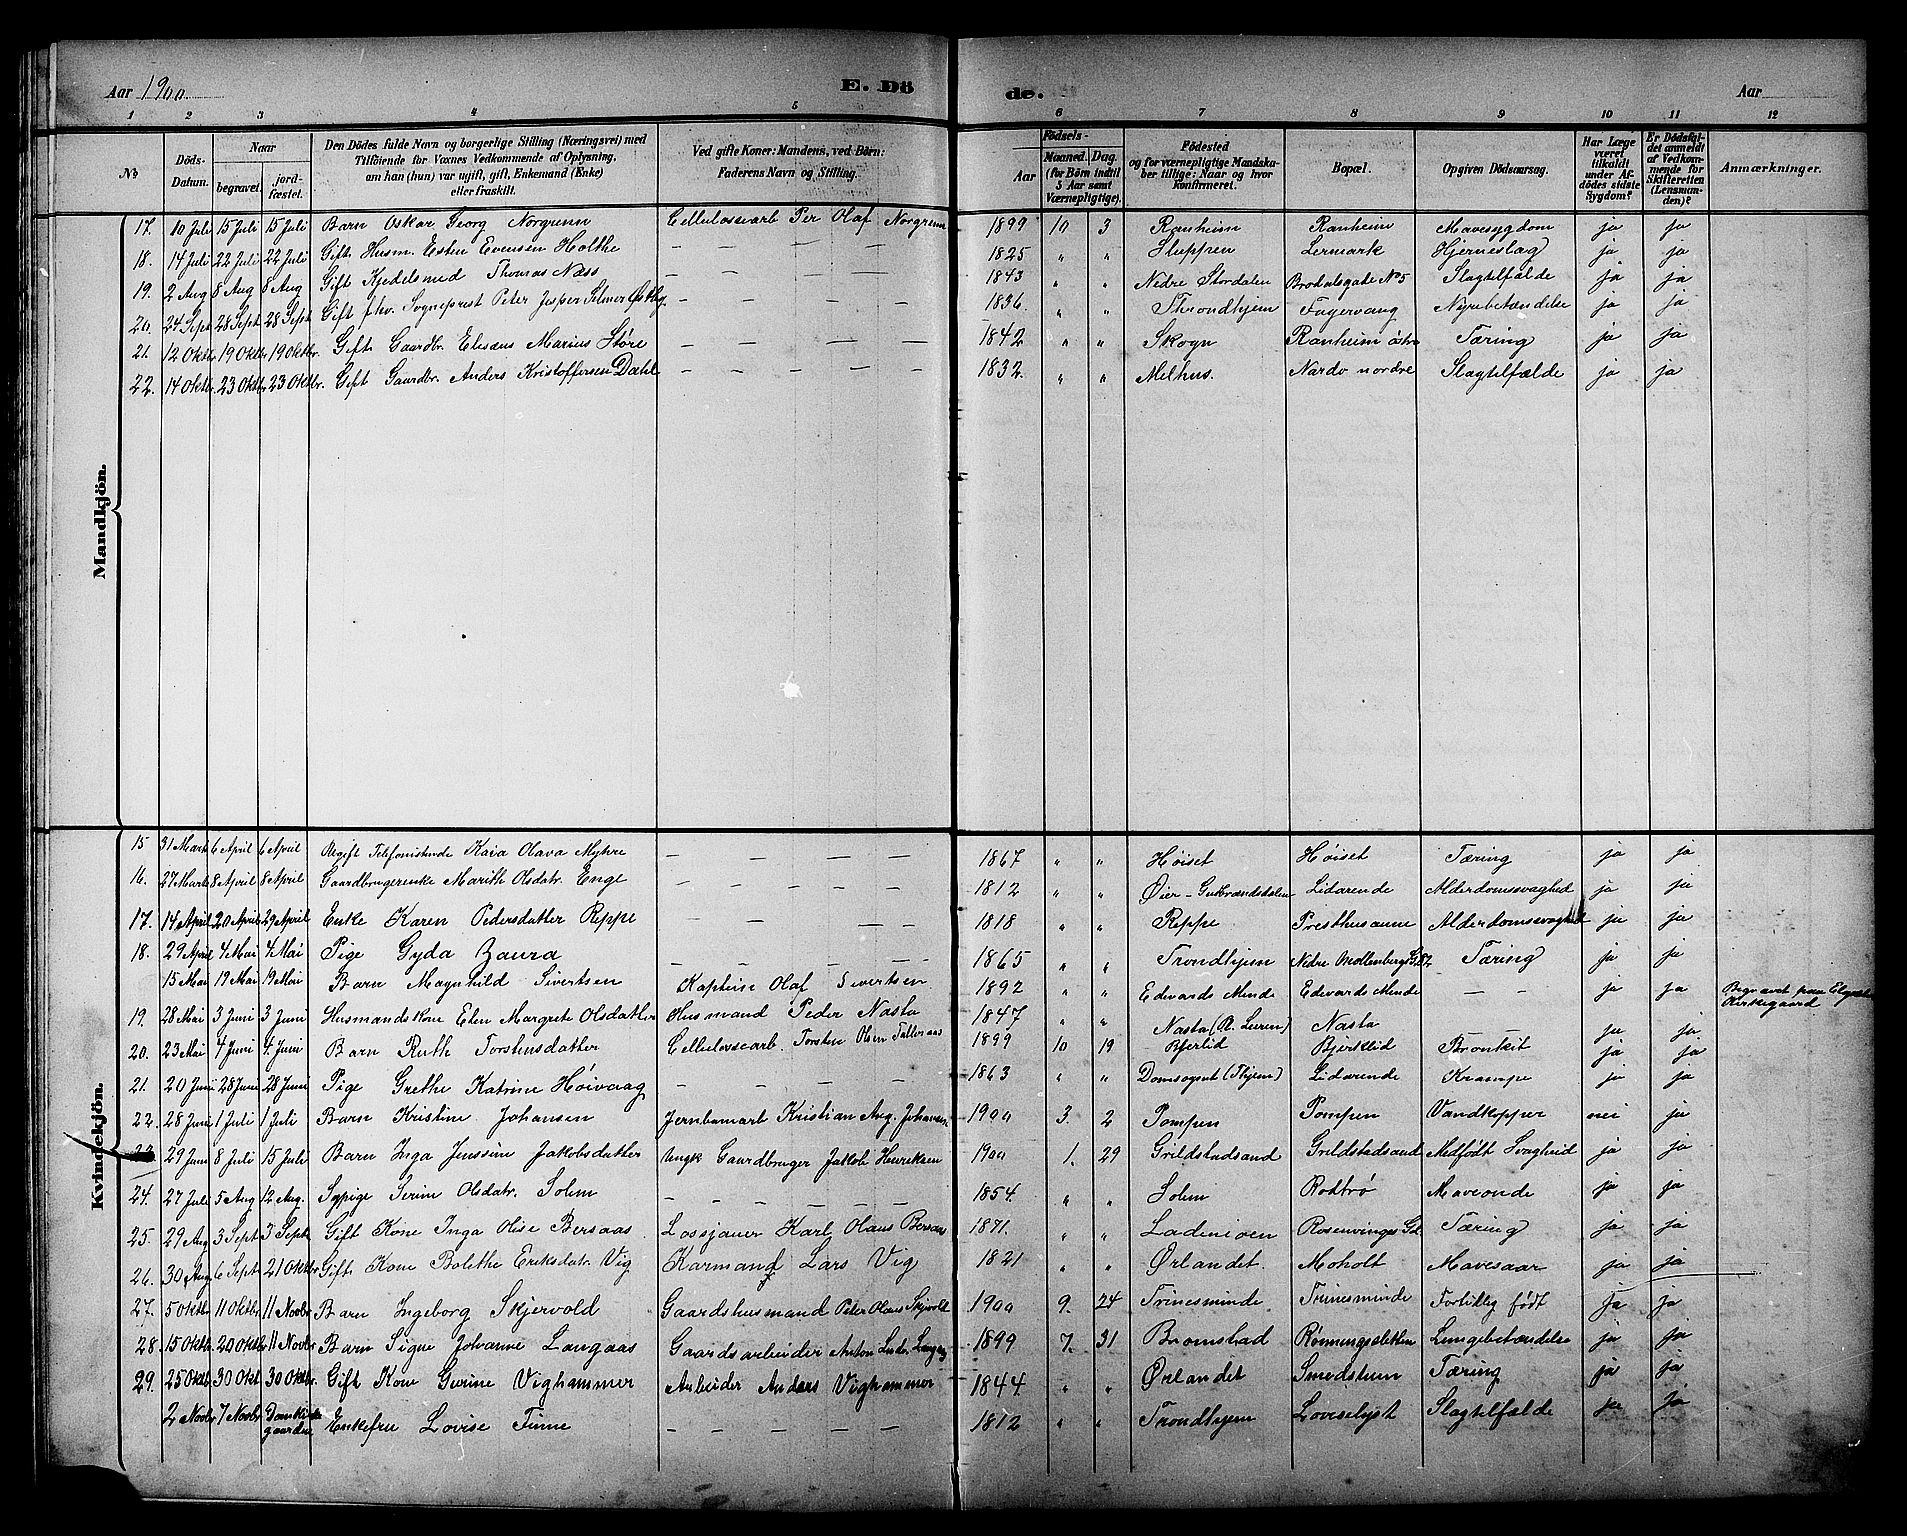 Aar 1900. E. Dö de. Aar
1 2 3 4 5 6 7 8 9 10 11 12
No Döds-Datum. Naar begravet. jordfæstet. Den Dödes fulde Navn og borgerlige Stilling (Næringsvei) med Tilföiende for Voxnes Vedkommende af Oplysning, om han (hun) var ugift, gift, Enkemand (Enke) eller fraskilt. Ved gifte Koner: Mandens, ved Börn: Faderens Navn og Stilling. Födsels- Aar Maaned. Dag. (for Börn indtil 5 Aar samt Værnepligtige). Födested og for værnepligtige Mandskaber tillige: Naar og hvor Konfirmeret. Bopæl. Opgiven Dödsaarsag. Har Læge været tilkaldt under Afdödes sidste Sygdom? Er Dödsfaldet anmeldt af Vedkommende for Skifteretten (Lensmanden)? Anmærkninger.
Mandkjön.
17. 10 Juli 15 Juli 15 Juli Barn Oskar Georg Norgrenn Cellulossearb Per Olaf Norgrenn 1899 10 3 Ranheim Ranheim Mavesygdom ja ja
18. 14 Juli 22 Juli 22 Juli Gift Husm. Esten Evensen Holthe — — — — 1825 " " Sluppen Lermark Hjerneslag ja ja
19. 2 Aug 8 Aug 8 Aug Gift Kjedelsmed Thomas Næss — — — — 1843 " " Nedre Stordalen No 5 Slagtilfælde ja ja
20. 24 Sept 28 Sept 28 Sept Gift fhv. Sogneprest Peter Jesper Selmer — — — — 1836. " " Throndhjem Fagervang Nyrebetændelse ja ja
21. 12 Oktbr. 19 Oktbr. 19 Oktbr. Gift. Gaardbr. Eliseus Marius Störe — — — — 1842 " " Skogn Ranheim östre Tæring ja ja
22. 14 Oktbr. 23 Oktbr. 23 Oktbr. Gift Gaardbr. Anders Kristoffersen Dahl — — — — 1832. " " Melhus. Nardo nordre Slagtilfælde ja ja
Kvindekjön.
15 31 Marts 6 April 6 April Ugift Telefonistinde Kaia Olava Myhre — — — — 1867 " " Höiset Höiset Tæring ja ja
16. 27 Marts 8 April 8 April Gaardbrugerenke Marith Olsdatr. Enge — — — — 1812 " " Øier-Gudbrandsdalen Lidarende Alderdomssvaghed ja ja
17. 14 April 20 April 29 April Enke Karen Pedersdatter Reppe — — — — 1818 " " Reppe Presthusaune Alderdomssvaghed ja ja
18. 29 April 4 Mai 4 Mai Pige Gyda Baura — — — — 1865 " " Trondhjem Nedre Mollenbergs G. Tæring ja ja
15 Mai 19 Mai 19 Mai Barn Magnhild Sivertsen Kapteine Olaf Sivertsen 1892 " " Edvards Minde Edvards Minde — — ja ja Begravet paa Kirkegaard
19. 28 Mai 3 Juni 3 Juni Husmandskone Elen Margrete Olsdatter Husmand Peder Nasta 1847 " " Nasta Nasta ja ja
20. 23 Mai 4 Juni 4 Juni Barn Ruth Torstensdatter Cellulossearb. Torsten Olsen 1899 10 19 Bjerklid Bronkit ja ja
21. 20 Juni 28 Juni 28 Juni Pige Grethe Katrine Höivaag — — — — 1863 " " Domsognet (Thjem) Lidarende Krampe ja ja
22. 28 Juni 1 Juli 1 Juli Barn Kristine Johansen Jernbanearb Kristian Aug. Johansen 1900 3. 2 Pompen Pompen Vandkopper nei ja
23 29 Juni 8 Juli 15 Juli Barn Inga Jenssine Jakobsdatter Ungk Gaardbruger Jakob Henriksen 1900 1. 29 Grilstadsand Grilstadsand Medfödt Svaghed ja ja
24. 27 Juli 5 Aug 12 Aug. Sypige Serine Olsdatr. Solem — — — — 1854. " " Solem Rodtrö Maveonde ja ja
25. 29 Aug 3 Sept 3 Sept Gift Kone Inga Olise Bersaas. Lossjauer Karl Olaus Bersaas 1871. " " Lademoen Rosenvinges Gd. Tæring ja ja
26. 30 Aug 6 Sept 21 Oktbr Gift Kone Bolethe Eriksdatr. Vig Karmand Lars Vig 1821 " " Ørlandet. Moholt Mavesaar ja ja
27. 5 Oktbr 11 Oktbr 11 Novbr Barn Ingeborg Skjervold Gaardshusmand Peter Olaus Skjervold 1900 9. 24 Trinesminde Trinesminde Fortidlig født ja ja
28. 15 Oktbr 20 Oktbr 11 Novbr Barn Signe Johanne Langaas Gaardsarbeider Anton Ludv. Langaas 1899 7. 31 Bromstad Rönningssletten Lungebetændelse ja ja
29. 25 Oktbr 30 Oktbr 30 Oktbr. Gift Kone Gurine Vighammer Arbeider Anders Vighammer 1844. " " Ørlandet Smedstuen Tæring ja ja
2 Novbr 7 Novbr Domkirkegaarden Enkefru Lovise Finne — — — — 1812 " " Trondhjem Loviselyst Slagtilfælde ja ja